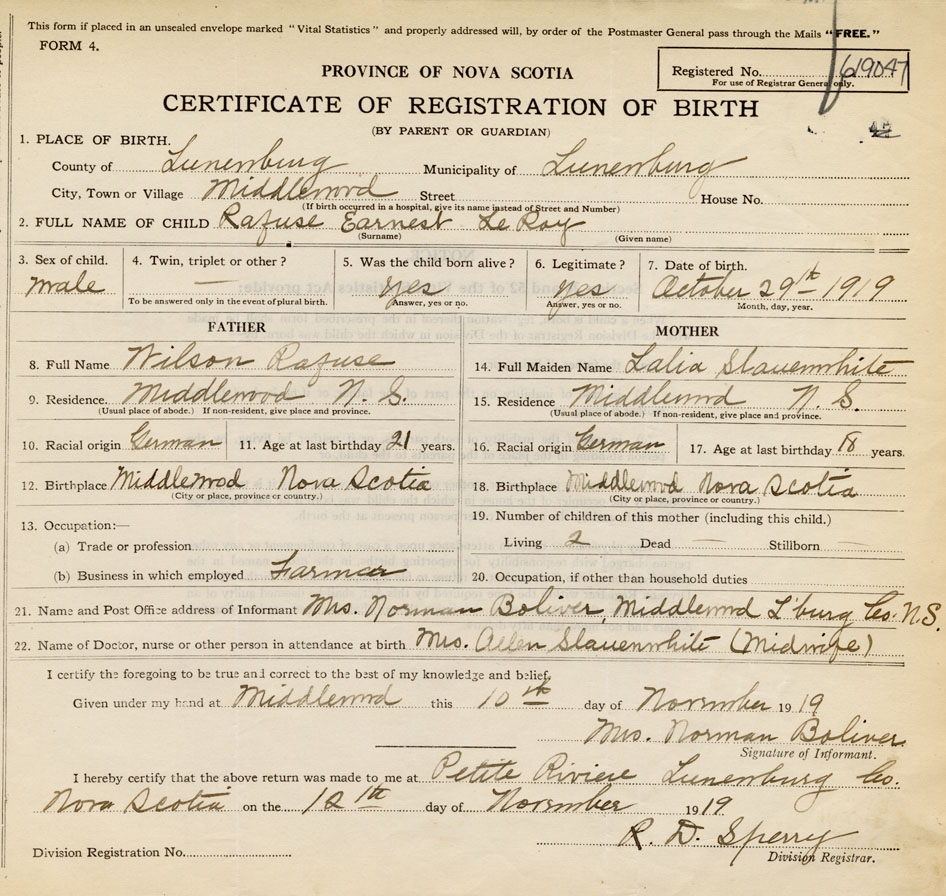 This form if placed in an unsealed envelope marked "Vital Statistics" and properly addressed will, by order of the Postmaster General pass through the Mails "FREE."
FORM 4.
PROVINCE OF NOVA SCOTIA
Registered No. 619047
For use of Registrar General only.
CERTIFICATE OF REGISTRATION OF BIRTH
(BY PARENT OR GUARDIAN)
1. PLACE OF BIRTH.
County of Lunenburg Municipality of Lunenburg
City, Town or Village Middlewood Street House No.
(If birth occurred in a hospital, give its name instead of Street and Number)
2. FULL NAME OF CHILD Rafuse Earnest Le Roy
(Surname) (Given name)
3. Sex of child. 4. Twin, triplet or other? 5. Was the child born alive? 6. Legitimate? 7. Date of birth.
Male — Yes Yes October 29th 1919
To be answered only in the event of plural birth. Answer, yes or no. Answer, yes or no. Month, day, year.
FATHER MOTHER
8. Full Name Wilson Rafuse 14. Full Maiden Name Lalia Slauenwhite
9. Residence. Middlewood N. S. 15. Residence Middlewood N. S.
(Usual place of abode.) If non-resident, give place and province. (Usual place of abode.) If non-resident, give place and province.
10. Racial origin German 11. Age at last birthday 21 years. 16. Racial origin German 17. Age at last birthday 18 years.
12. Birthplace Middlewood Nova Scotia 18. Birthplace Middlewood Nova Scotia
(City or place, province or country.) (City or place, province or country.)
13. Occupation:— 19. Number of children of this mother (including this child.)
(a) Trade or profession Living 2 Dead — Stillborn —
(b) Business in which employed Farmer 20. Occupation, if other than household duties
21. Name and Post Office address of Informant Mrs. Norman Boliver, Middlewood L'burg Co. N.S.
22. Name of Doctor, nurse or other person in attendance at birth Mrs. Allen Slauenwhite (Midwife)
I certify the foregoing to be true and correct to the best of my knowledge and belief.
Given under my hand at Middlewood this 10th day of November 1919
Mrs. Norman Boliver
Signature of Informant.
I hereby certify that the above return was made to me at Petite Riviere Lunenburg Co.
Nova Scotia on the 12th day of November 1919
R. D. Sperry
Division Registration No. Division Registrar.